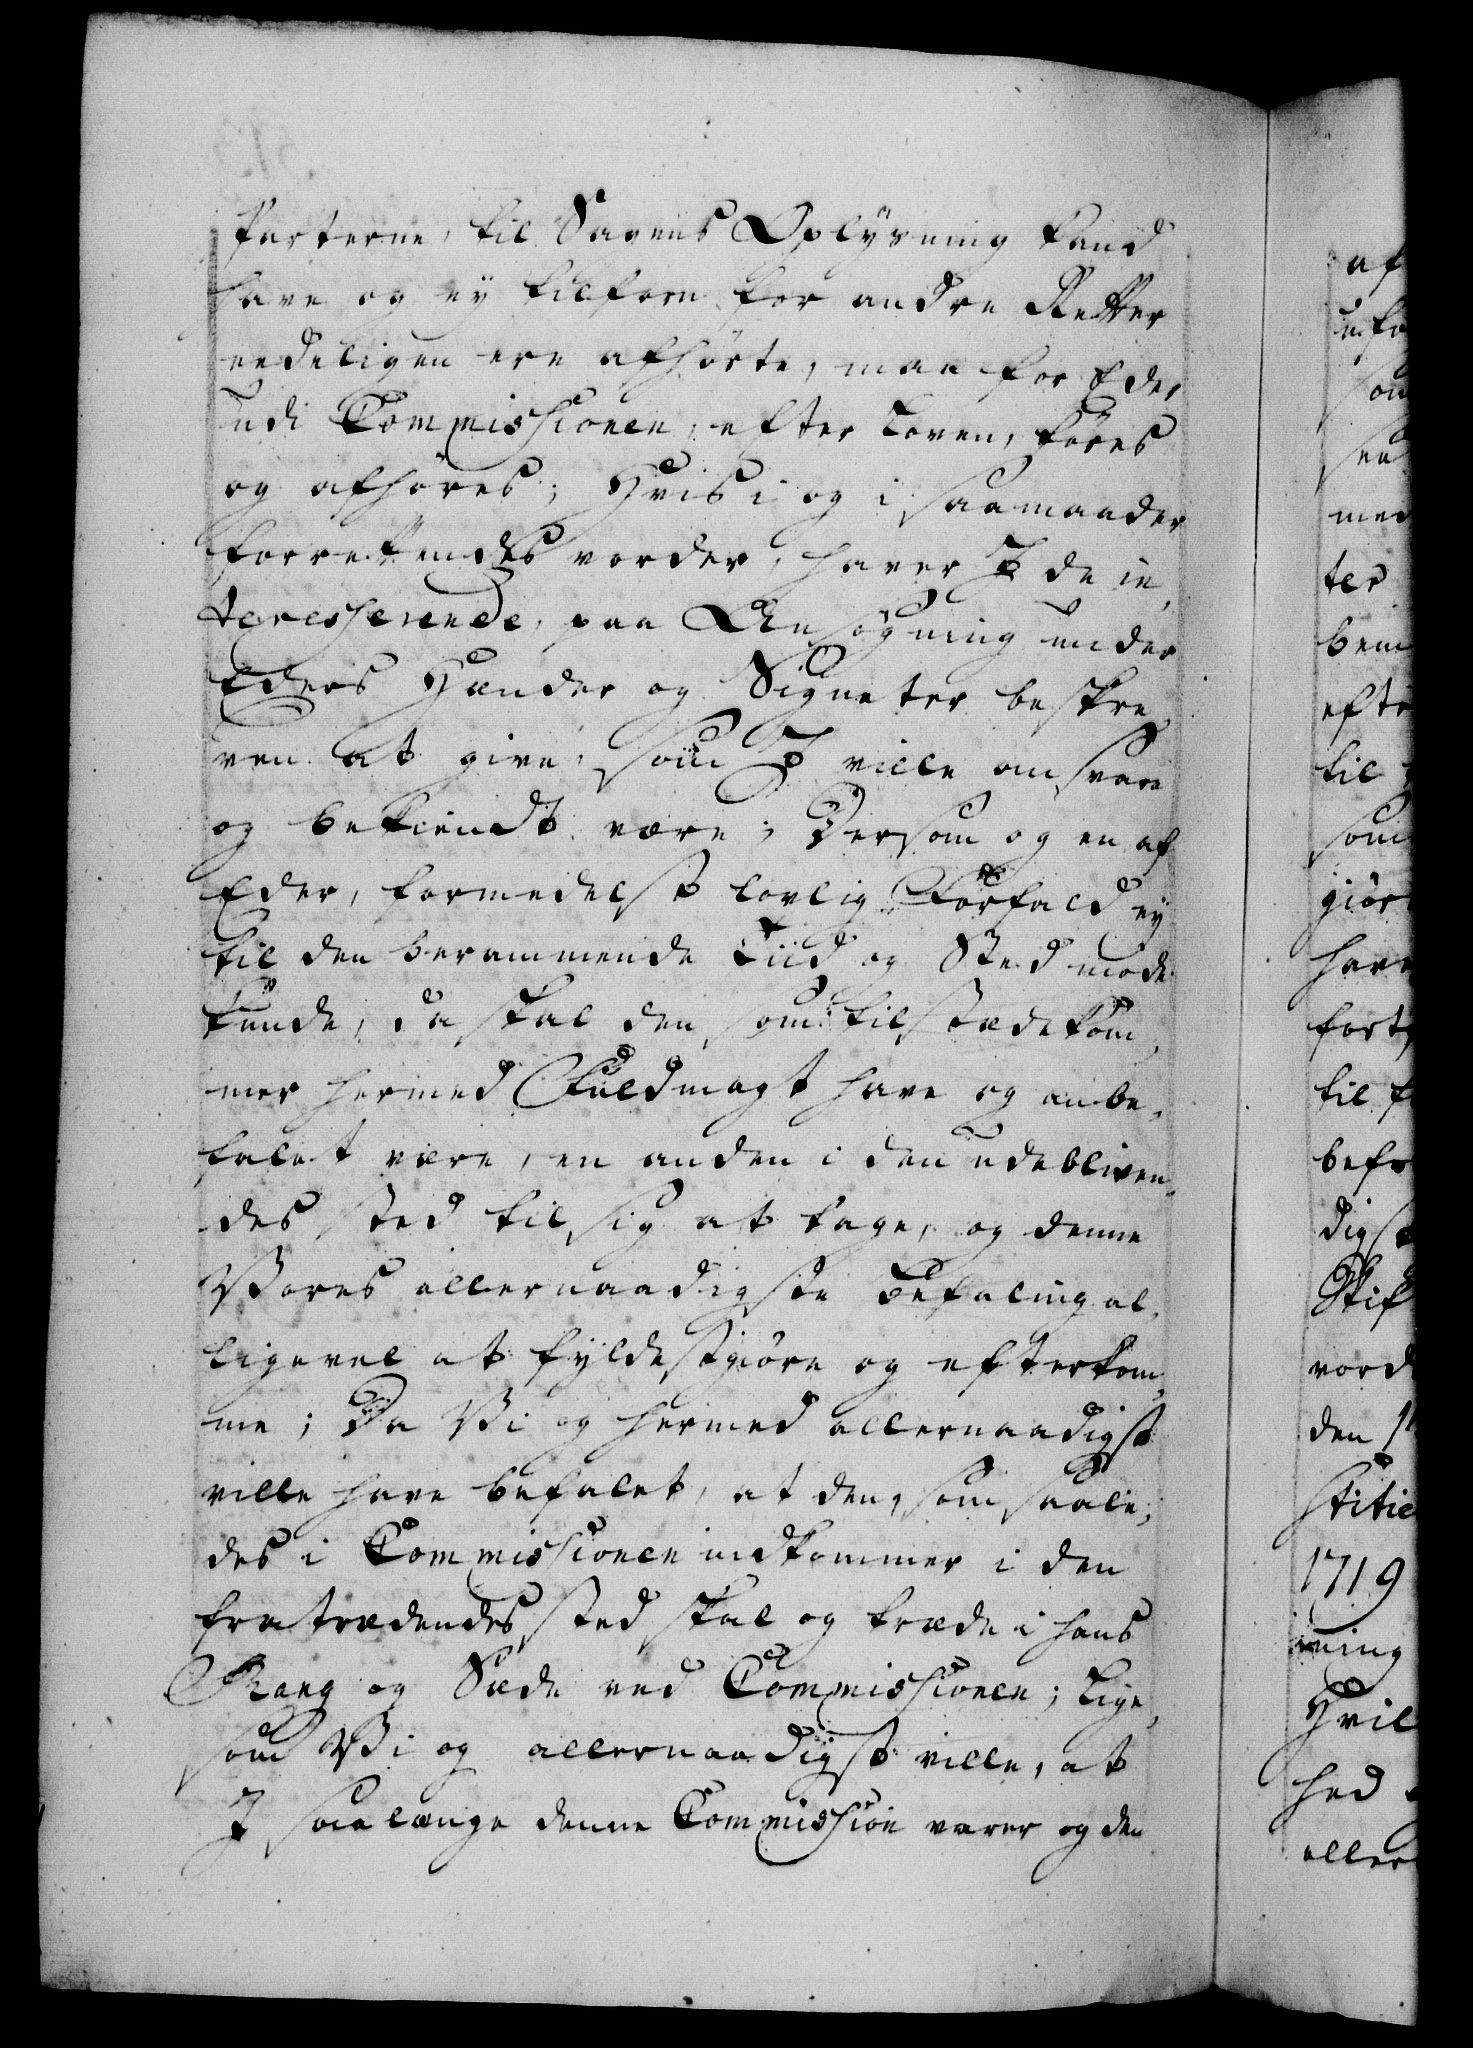 Parterne, til Sagens Oplysning kand
have og ey tilforn for andre Retter
eedeligen ere afhørte, maa for Eder
udi Commissionen, efter Loven, føres
og afhøres; Hvis i og i saamaader
forrettendes vorder, haver I de in,
teresserende, paa Ansøgning under
Eders Hænder og Signeter beskre,
ven at give, som I ville ansvare
og bekiendt være; Dersom og en af
Eder, formedelst lovlig Forfald ey
til den berammende Tiid og Sted møde
kunde, da skal den som tilstædekom,
mer hermed Fuldmagt have og anbe,
falet være, en anden i den udebliven,
des sted til sig at tage, og denne
Vores allernaadigste Befaling al,
ligevel at fyldestgiøre og efterkom,
me; Da Vi og hermed allernaadigst
ville have befalet, at den, som saale,
des i Commissionen indkommer i den
fratrædendes sted skal og træde i hans
Rang og Sæde ved Commissionen; Lige,
som Vi og allernaadigst ville, at
I saalænge denne Commission varer og den
af
som
med
ter
efte
til
som
giør
have
til
digst
Stif
vord
den
stitie
1719
ning
Hvil
hed
aller